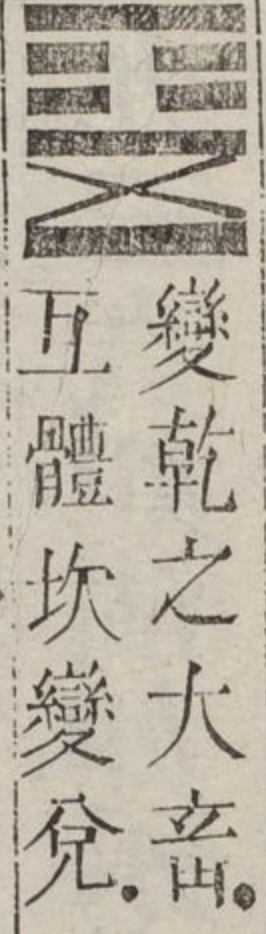 變乾之大畜.
互體坎變兌.